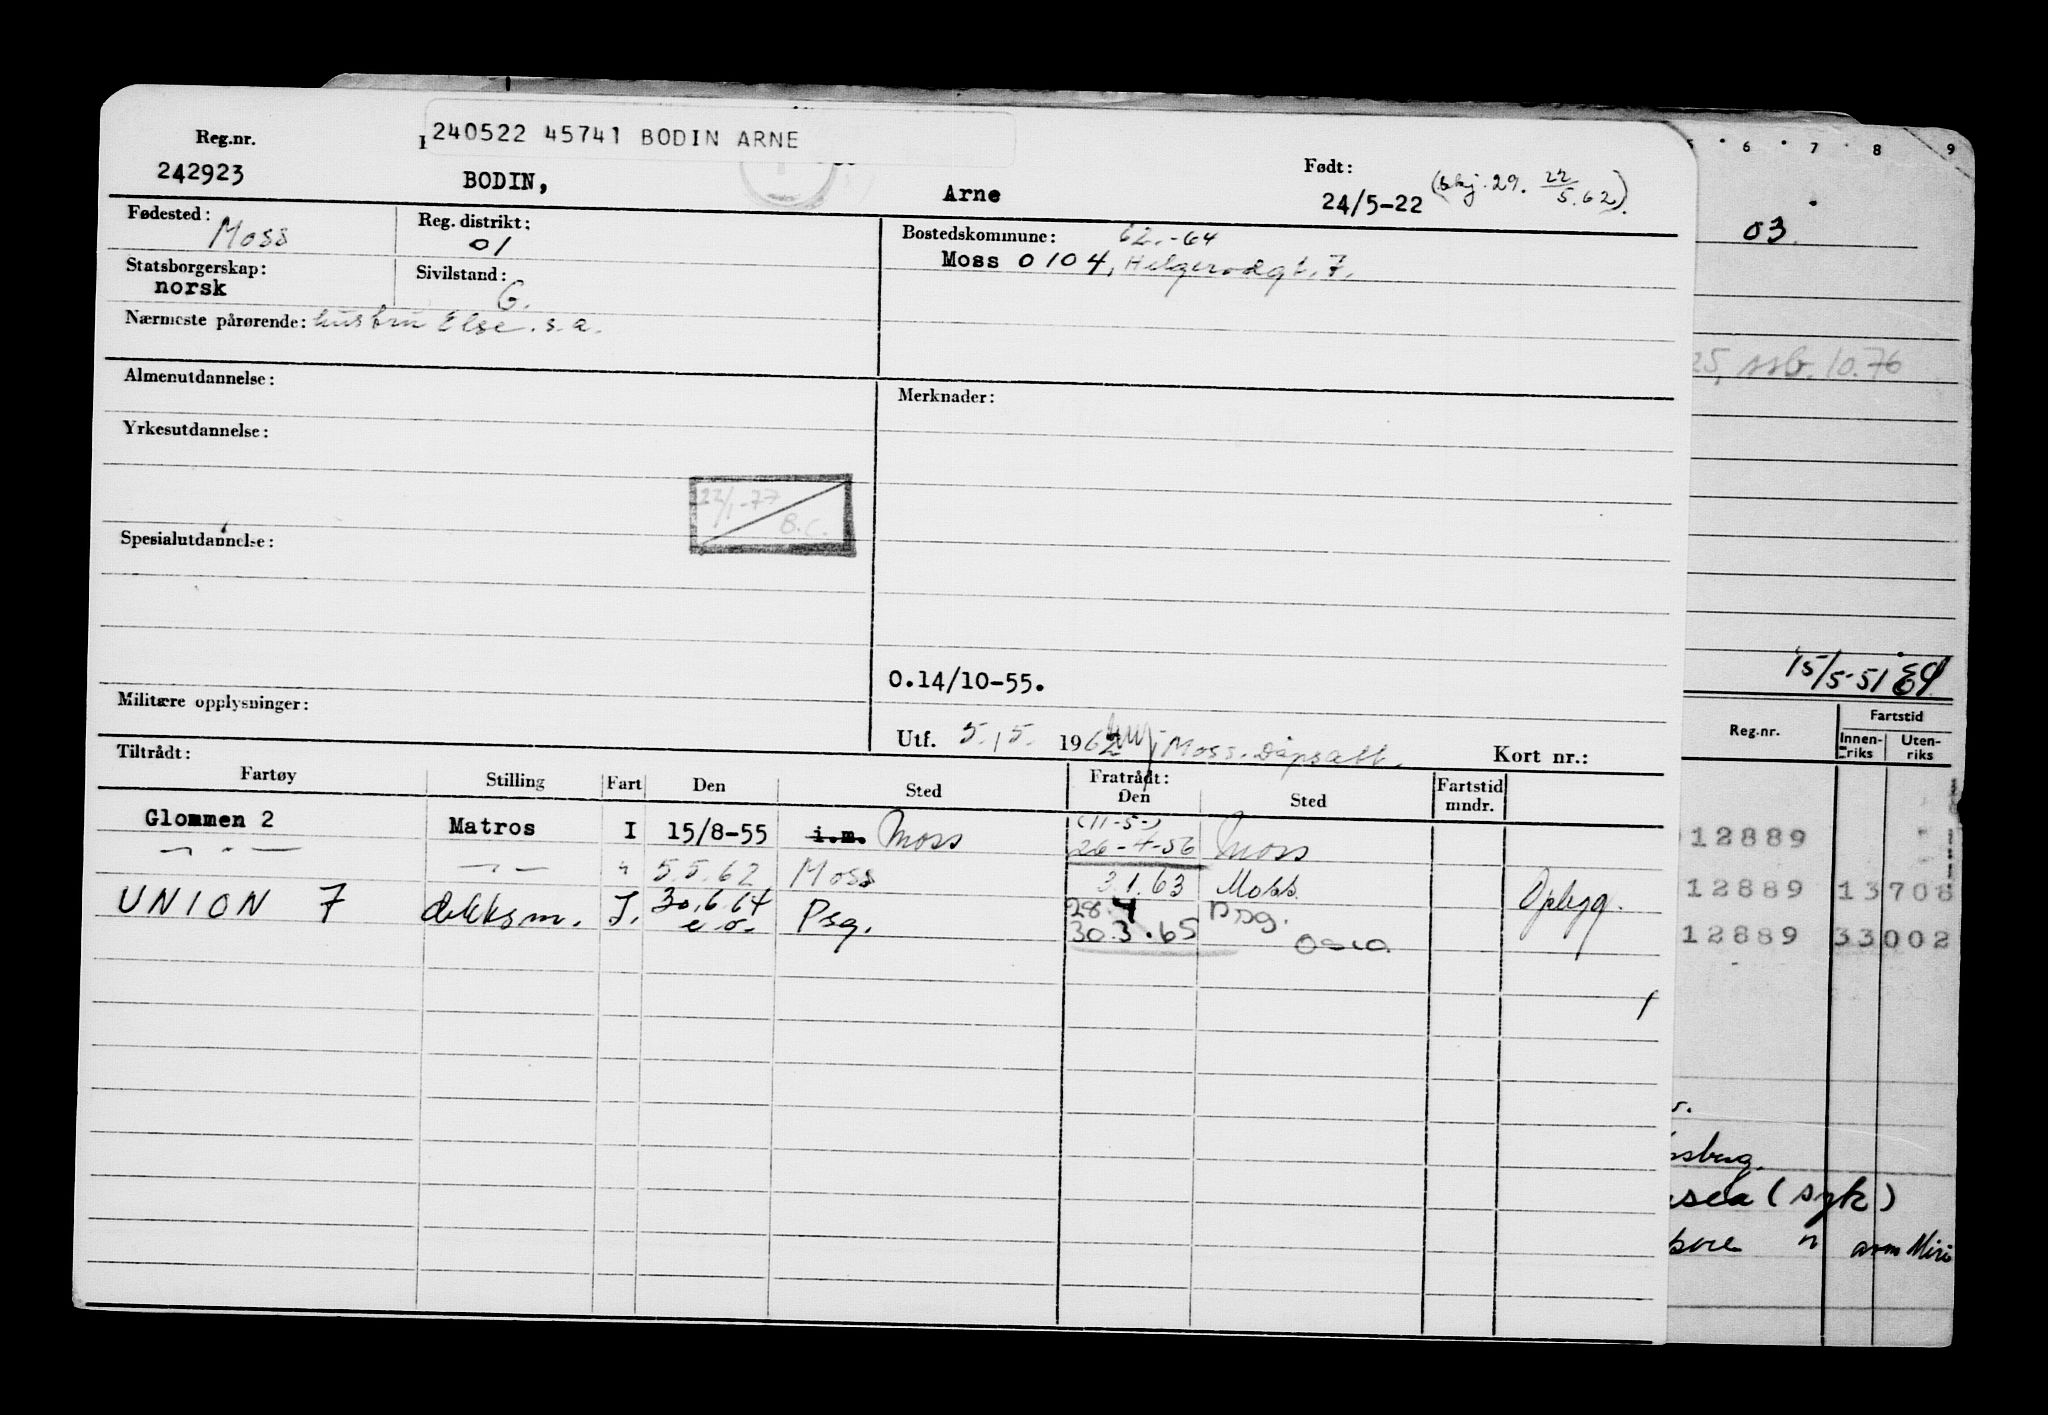 240522 45741 BODIN ARNE
Reg.nr.
242923
BODIN,
Arne
Født:
24/5-22
22/5.62).
Fødested:
Moss
Reg. distrikt:
01
Statsborgerskap:
norsk
Sivilstand:
G.
Nærmeste pårørende: hustru Else. s.a.
Bostedskommune: 62.-64
Moss 0104, Helgerødgt. 7.
Almenutdannelse:
Yrkesutdannelse:
Spesialutdannelse:
Militære opplysninger:
22/1-77
B.C.
Merknader:
0.14/10-55.
Utf. 5.15. 1962 Moss.
Kort nr.:
Tiltrådt:
Fartøy Stilling Fart Den Sted
Fratrådt:
Den Sted
Fartstid
mndr.
Glommen 2 Matros I 15/8-55 i.m. Moss (11-5-) 26-4-56 Moss
— " — — " — " 5.5.62 Moss 3.1.63 Moss
UNION 7 dekksm. I. 30.6.64 Psg. 28.4 Psg. Opbyg.
e.o. 30.3.65 Oslo
5 6 7 8 9
03
25, ssb. 10.76
15/5-51
Reg.nr.
Fartstid
Innen-
riks
Uten-
riks
12889
12889 13708
12889 33002
(syk)